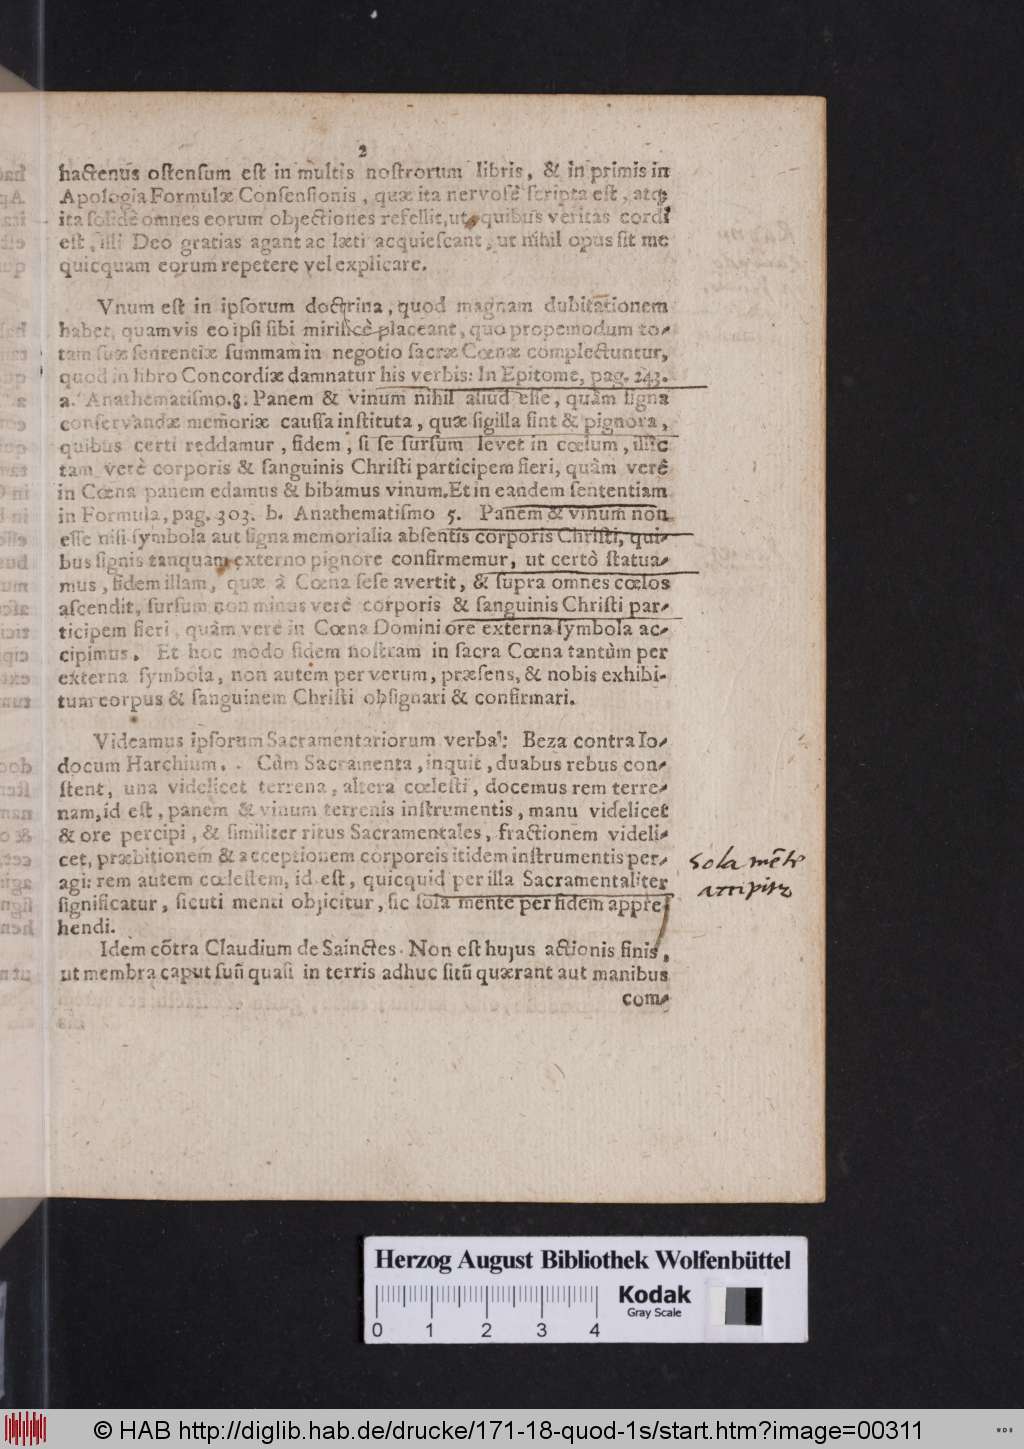 2
hactenus ostensum est in multis nostrorum libris, & in primis in
Apologia Formulæ Consensionis, quæ ita nervosè scripta est, atq;
ita solidè omnes eorum objectiones refellit, ut, quibus veritas cordi
est, illi Deo gratias agant ac læti acquiescant, ut nihil opus sit me
quicquam eorum repetere vel explicare.
Vnum est in ipsorum doctrina, quod magnam dubitationem
habet, quamvis eo ipsi sibi mirificè placeant, quo propemodum to-
tam suæ sententiæ summam in negotio sacræ Cœnæ complectuntur,
quod in libro Concordiæ damnatur his verbis: In Epitome, pag. 243.
a. Anathematismo. 8. Panem & vinum nihil aliud esse, quàm signa
conservandæ memoriæ caussa instituta, quæ sigilla sint & pignora,
quibus certi reddamur, fidem, si se sursum levet in cœlum, illic
tam verè corporis & sanguinis Christi participem fieri, quàm verè
in Cœna panem edamus & bibamus vinum. Et in eandem sententiam
in Formula, pag. 303. b. Anathematismo 5. Panem & vinum non
esse nisi symbola aut signa memorialia absentis corporis Christi, qui-
bus signis tanquam externo pignore confirmemur, ut certò statua-
mus, fidem illam, quæ à Cœna sese avertit, & supra omnes cœlos
ascendit, sursum non minus verè corporis & sanguinis Christi par-
ticipem fieri, quàm verè in Cœna Domini ore externa symbola ac-
cipimus. Et hoc modo fidem nostram in sacra Cœna tantùm per
externa symbola, non autem per verum, præsens, & nobis exhibi-
tum corpus & sanguinem Christi obsignari & confirmari.
Videamus ipsorum Sacramentariorum verba: Beza contra Io-
docum Harchium. Cùm Sacramenta, inquit, duabus rebus con-
stent, una videlicet terrena, altera cœlesti, docemus rem terre-
nam, id est, panem & vinum terrenis instrumentis, manu videlicet
& ore percipi, & similiter ritus Sacramentales, fractionem videli-
cet, præbitionem & acceptionem corporeis itidem instrumentis per-
agi: rem autem cœlestem, id est, quicquid per illa Sacramentaliter
significatur, sicuti menti objicitur, sic sola mente per fidem appre-
hendi.
sola mēte
arripitr
Idem cōtra Claudium de Sainctes. Non est hujus actionis finis,
ut membra caput suū quasi in terris adhuc sitū quærant aut manibus
com-
Herzog August Bibliothek Wolfenbüttel
0 1 2 3 4
Kodak
Gray Scale
© HAB http://diglib.hab.de/drucke/171-18-quod-1s/start.htm?image=00311